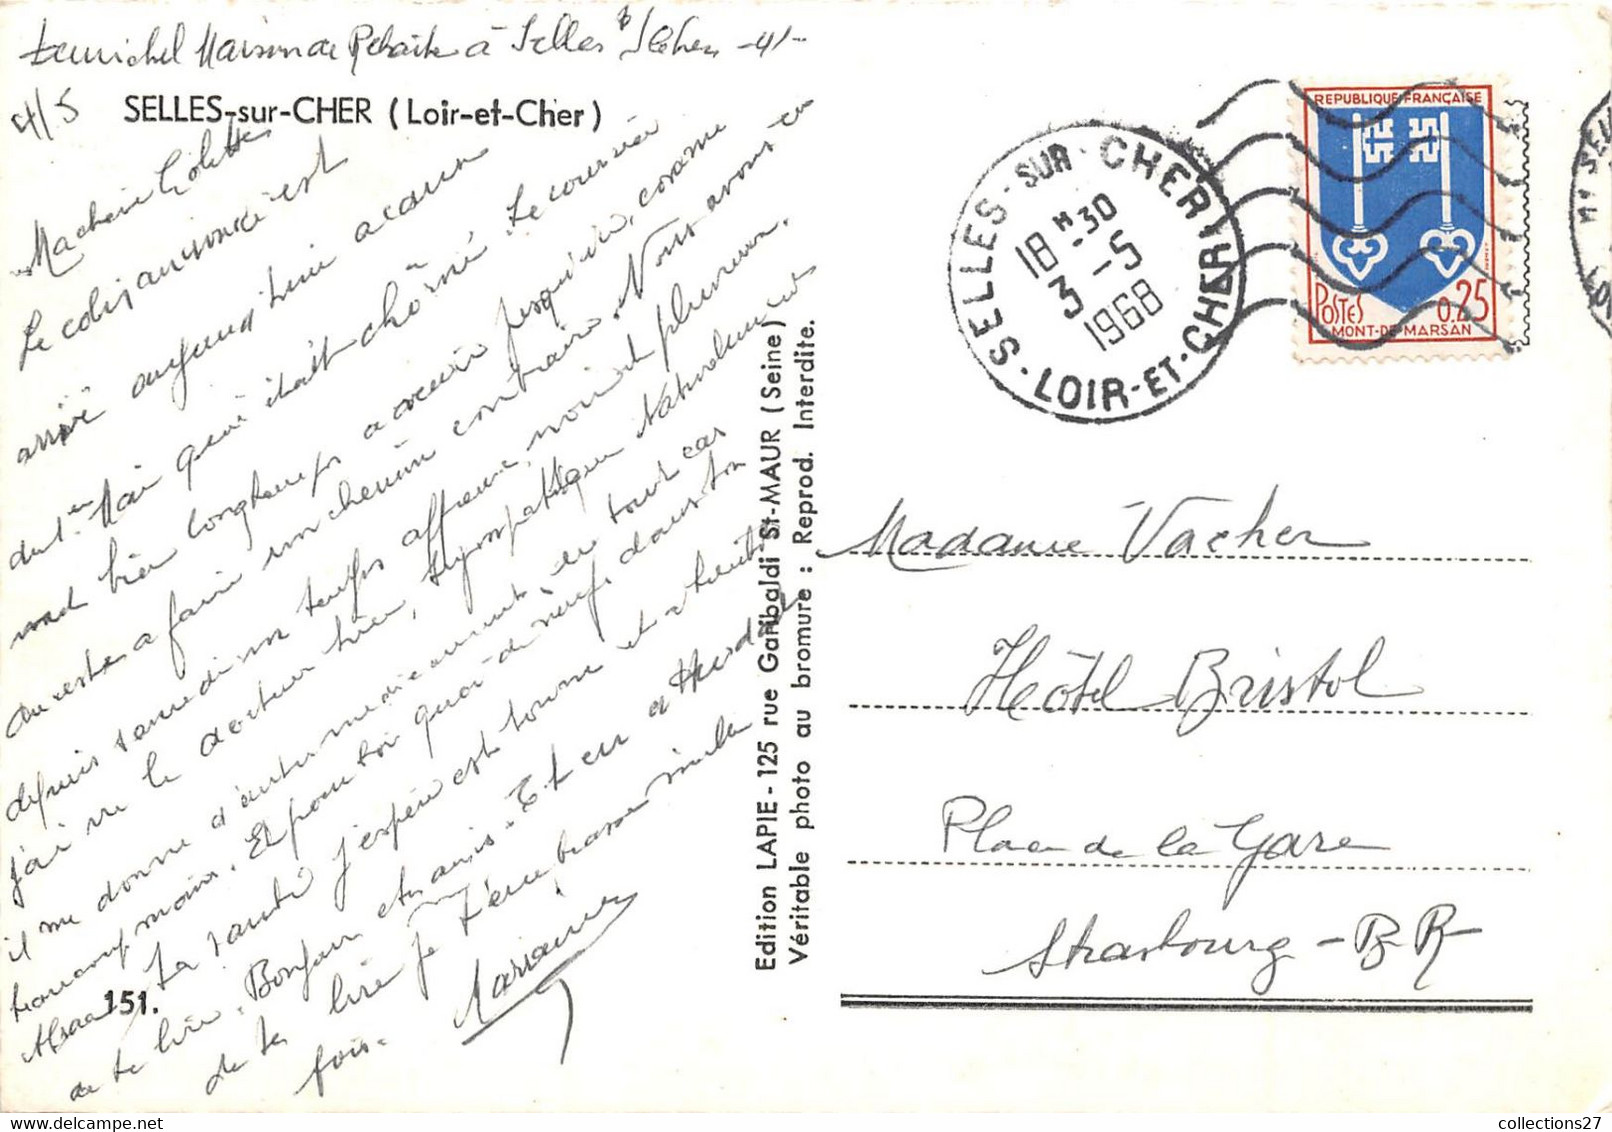 Maison de Retraite à Selles s/ Cher -41-
4/5
SELLES-sur-CHER (Loir-et-Cher)
Ma chère Colette
Le colis annoncé est
arrivé aujourd'hui a cause
du 1er Mai qui était chômé. Le courrier
met bien longtemps a venir jusqu'ici, comme
du reste a faire un chemin contraire. Nous avons eu
depuis samedi un temps affreux, noir et pluvieux.
j'ai vu le docteur hier, sympathique Naturellement
il me donne d'autres médicaments, en tout cas
beaucoup moins. Et pour toi quoi de neuf, dans ton
Alsace. La santé j'espère est bonne et
de te lire. Bonjour et amis.
de te lire je t'embrasse mille
fois. Marianne
151.
Edition LAPIE - 125 rue Garibaldi St-MAUR (Seine)
Véritable photo au bromure : Reprod. Interdite.
SELLES-SUR-CHER
18 H 30
3 - 5
1968
LOIR-ET-CHER
REPUBLIQUE FRANÇAISE
POSTES 0.25
MONT-DE-MARSAN
Madame Vacher
Hôtel Bristol
Place de la Gare
Strasbourg - B R-
collections27